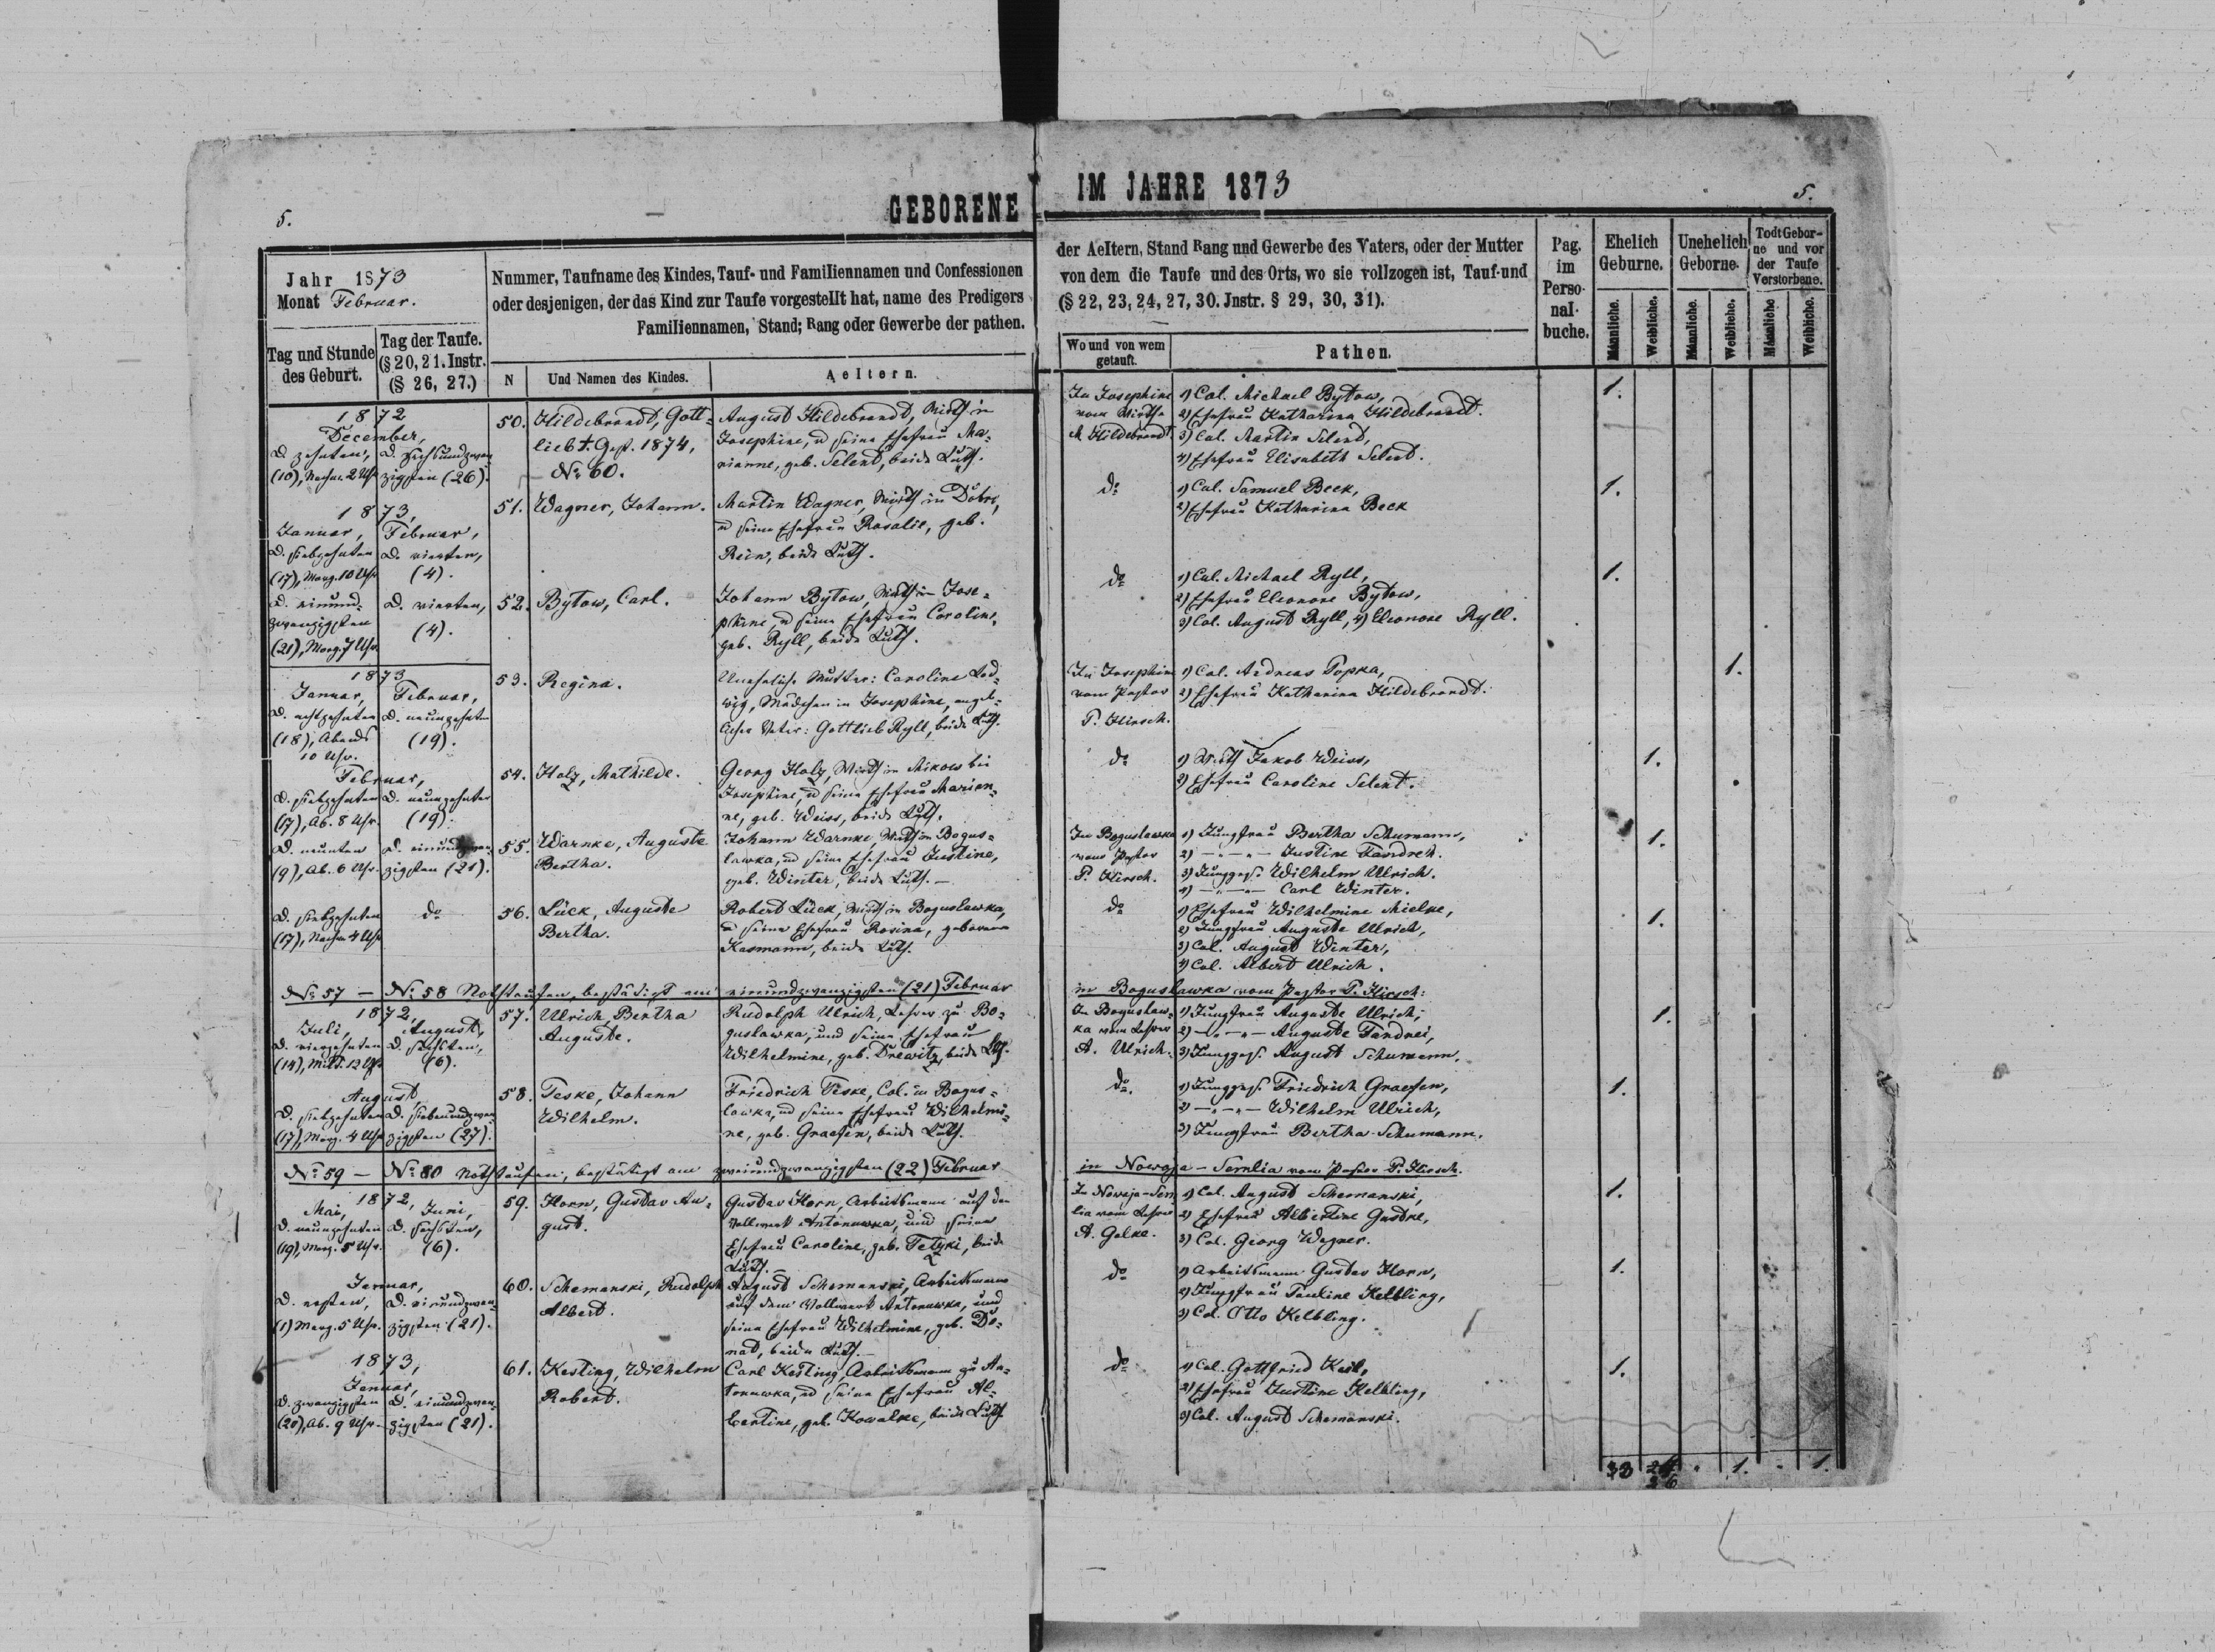 5.
GEBORENE
IM JAHRE 1873
5.
Jahr 1873
Monat Februar.
Tag und Stunde
des Geburt.
Tag der Taufe.
(§ 20, 21. Instr.
(§ 26, 27.)
Nummer, Taufname des Kindes, Tauf- und Familiennamen und Confessionen
oder desjenigen, der das Kind zur Taufe vorgestellt hat, name des Predigers
Familiennamen, Stand; Rang oder Gewerbe der pathen.
N
Und Namen des Kindes.
Aeltern.
der Aeltern, Stand Rang und Gewerbe des Vaters, oder der Mutter
von dem die Taufe und des Orts, wo sie vollzogen ist, Tauf-und
(§ 22, 23, 24, 27, 30. Jnstr. § 29, 30, 31).
Wo und von wem
getauft.
Pathen.
Pag.
im
Perso-
nal-
buche.
Ehelich
Geburne.
Unehelich
Geborne.
Todt Gebor-
ne und vor
der Taufe
Verstorbene.
Männliche.
Weibliche.
Männliche.
Weibliche.
Männliche
Weibliche.
1872
December,
D. zehnten,
(10), Nachm. 2 Uhr
D. sechsundzwan
zigsten (26).
50. Hildebrandt, Gott-
lieb †. Gest. 1874,
No 60.
August Hildebrandt, Wirth in
Josephine, u seine Ehefrau Ma-
rianne, geb. Selent, beide Luth.
In Josephine
vom Wirthe
M. Hildebrandt.
1) Col. Michael Bytow,
2) Ehefrau Katharina Hildebrandt.
3) Col. Martin Selent,
4) Ehefrau Elisabeth Selent.
1.
1873,
Januar,
D. siebzehnten
(17), Morg. 10 Uhr
Februar,
D. vierten,
(4).
51. Wagner, Johann.
Martin Wagner, Wirth in Dobre,
u seine Ehefrau Rosalie, geb.
Rein, beide Luth.
do
1) Col. Samuel Beck,
2) Ehefrau Katharina Beck
1.
D. einund-
zwanzigsten
(21), Morg. 7 Uhr.
D. vierten,
(4).
52. Bytow, Carl.
Johann Bytow, Wirth in Jose-
phine, u seine Ehefrau Caroline,
geb. Ryll, beide Luth.
do
1) Col. Michael Ryll,
2) Ehefrau Eleonore Bytow,
3) Col. August Ryll, 4) Eleonore Ryll.
1.
1873
Januar,
D. achtzehnten
(18), Abends
10 Uhr.
Februar,
D. neunzehnten
(19).
53. Regina.
Uneheliche Mutter: Caroline Lod-
wig, Mädchen in Josephine, angeb-
licher Vater: Gottlieb Ryll, beide Luth.
In Josephine
vom Pastor
P. Hirsch.
1) Col. Andreas Popka,
2) Ehefrau Katharina Hildebrandt.
1.
Februar,
D. siebzehnten
(17), Ab. 8 Uhr.
D. neunzehnten
(19).
54. Holz, Mathilde.
Georg Holz, Wirth in Mikow bei
Josephine, u seine Ehefrau Marian-
ne, geb. Weiss, beide Luth.
do
1) Wirth Jakob Weiss,
2) Ehefrau Caroline Selent.
1.
D. neunten
(9), Ab. 6 Uhr.
D. einundzwan-
zigsten (21).
55. Warnke, Auguste
Bertha.
Johann Warnke, Wirth in Bogus-
lawka, u seine Ehefrau Justine,
geb. Winter, beide Luth. –
In Boguslawka
vom Pastor
P. Hirsch.
1) Jungfrau Bertha Schumann,
2) –„–„– Justine Fandrei.
3) Junggesl. Wilhelm Ulrich.
4) –„–„– Carl Winter.
1.
D. siebzehnten
(17), Nachm. 4 Uhr
do
56. Lück, Auguste
Bertha.
Robert Lück, Wirth in Boguslawka,
u seine Ehefrau Rosina, geborene
Kasmann, beide Luth.
do
1) Ehefrau Wilhelmine Mielke,
2) Jungfrau Auguste Ulrich,
3) Col. August Winter,
4) Col. Albert Ulrich.
1.
No 57 – No 58 Nothtaufen, bestätigt am einundzwanzigsten (21) Februar in Boguslawka vom Pastor P. Hirsch:
1872,
Juli,
D. vierzehnten
(14), Mitt. 12 Uhr
August,
D. sechsten,
(6).
57. Ulrich, Bertha
Auguste.
Rudolph Ulrich, Lehrer zu Bo-
guslawka, und seine Ehefrau
Wilhelmine, geb. Drewitz, beide Luth.
In Boguslaw-
ka vom Lehrer
A. Ulrich.
1) Jungfrau Auguste Ulrich,
2) –„–„– Auguste Fandrei,
3) Junggesl. August Schumann.
1.
August,
D. siebzehnten
(17), Morg. 4 Uhr
D. siebenundzwan
zigsten (27).
58. Teske, Johann
Wilhelm.
Friedrich Teske, Col. in Bogus-
lawka, u seine Ehefrau Wilhelmi-
ne, geb. Graefen, beide Luth.
do.
1) Junggesl. Friedrich Graefen,
2) –„–„– Wilhelm Ulrich,
3) Jungfrau Bertha Schumann.
1.
No 59 – No 80 Nothtaufen, bestätigt am zweiundzwanzigsten (22) Februar in Nowaja-Semlia vom Pastor P. Hirsch.
1872,
Mai,
D. neunzehnten
(19), Morg. 5 Uhr.
Juni,
D. sechsten,
(6).
59. Horn, Gustav Au-
gust.
Gustav Horn, Arbeitsmann auf dem
Vollwerk Antonuwka, und seine
Ehefrau Caroline, geb. Tetzki, beide
Luth. –
In Nowaja-Sem
lia vom Lehrer
A. Galke.
1) Col. August Schemanski,
2) Ehefrau Albertine Gustke,
3) Col. Georg Wagner.
1.
Januar,
D. ersten,
(1) Morg. 5 Uhr.
D. einundzwan-
zigsten (21).
60. Schemanski, Rudolph
Albert.
August Schemanski, Arbeitsmann
auf dem Vollwerk Antonuwka, und
seine Ehefrau Wilhelmine, geb. Do-
nat, beide Luth. –
do
1) Arbeitsmann Gustav Horn,
2) Jungfrau Pauline Kelbling,
3) Col. Otto Kelbling.
1.
1873,
Januar,
D. zwanzigsten
(20), Ab. 9 Uhr.
D. einundzwan-
zigsten (21).
61. Kesling, Wilhelm
Robert.
Carl Kesling, Arbeitsmann zu An-
tonuwka, u seine Ehefrau Al-
bertine, geb. Kowalke, beide Luth
do
1) Col. Gottfried Keil,
2) Ehefrau Justine Kelbling,
3) Col. August Schemanski.
1.
1.
1.